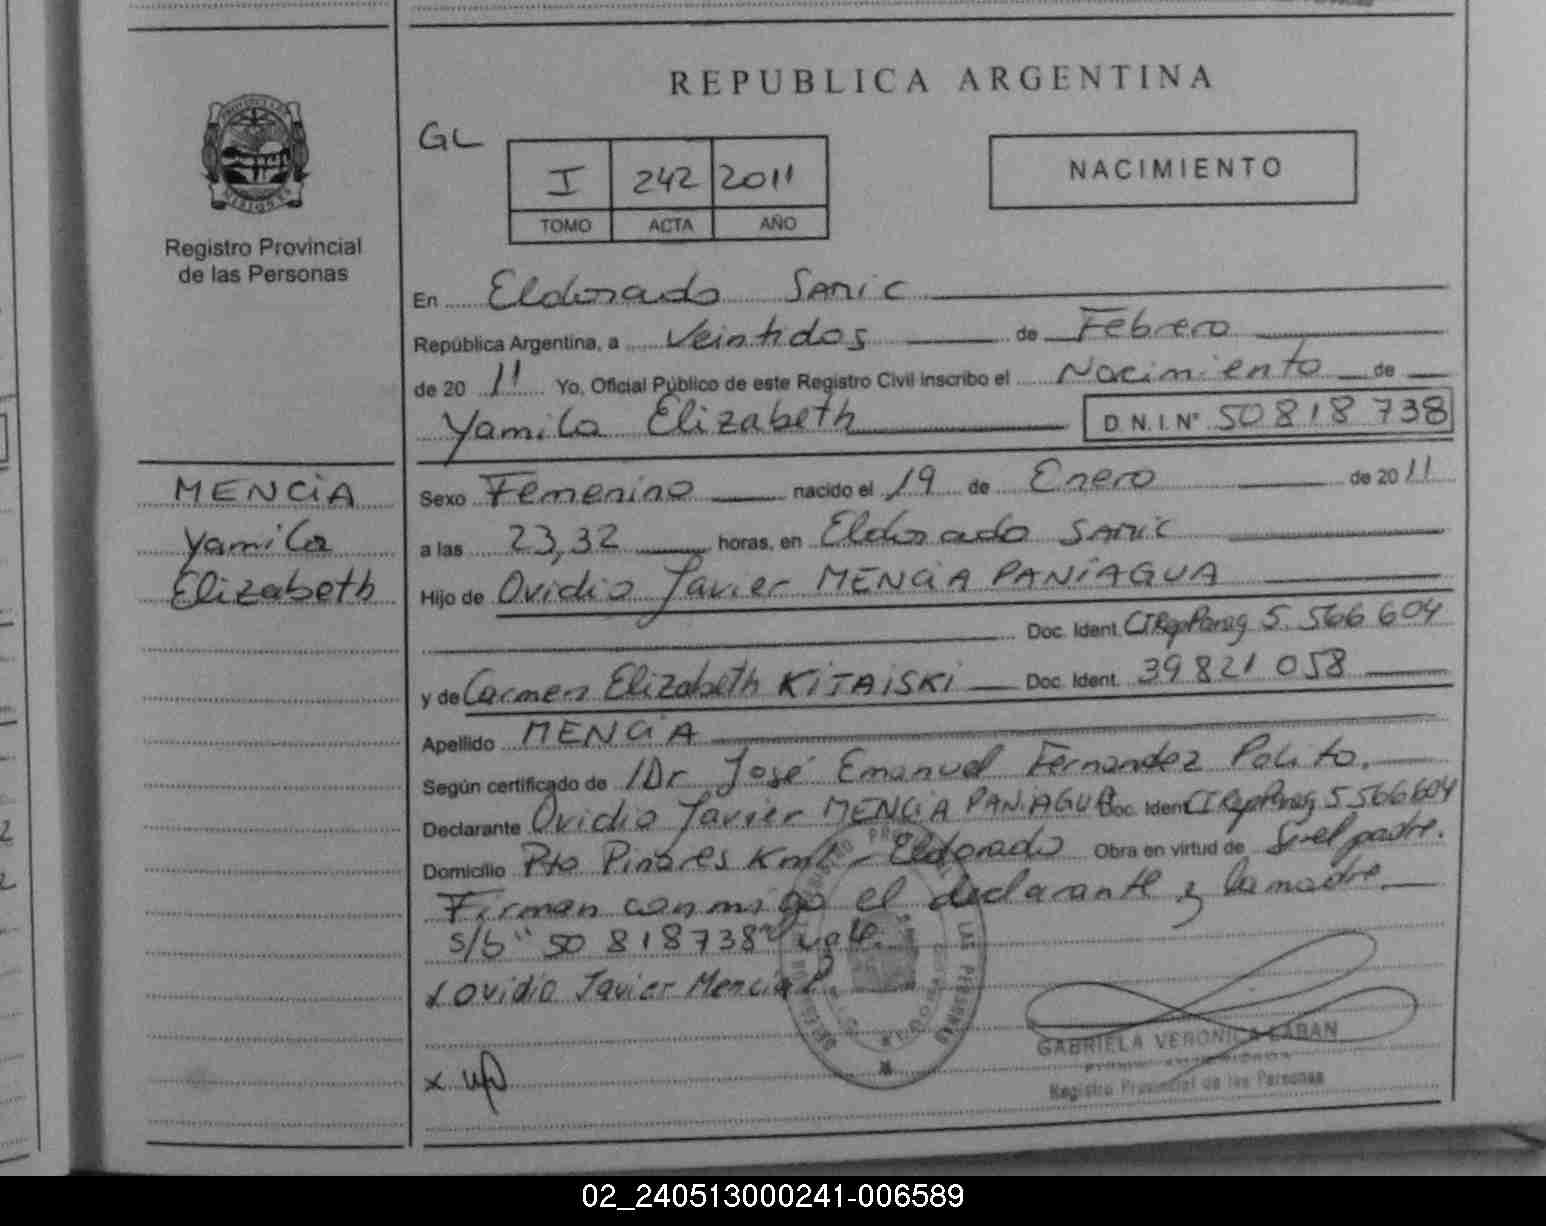 REPUBLICA ARGENTINA
GL
I 242 2011
TOMO ACTA AÑO
NACIMIENTO
Registro Provincial
de las Personas
En Eldorado SAMIC
República Argentina, a Veintidos de Febrero
de 20 11 Yo, Oficial Público de este Registro Civil inscribo el Nacimiento de
Yamila Elizabeth D.N.I. Nº 50 818 738
MENCiA
Yamila
Elizabeth
Sexo Femenino nacido el 19 de Enero de 20 11
a las 23,32 horas, en Eldorado SAMIC
Hijo de Ovidio Javier MENCiA PANiAGUA
Doc. Ident. CI Rep Parag 5.566 604
y de Carmen Elizabeth KiTAiSKi Doc. Ident. 39 821 058
Apellido MENCiA
Según certificado de Dr José Emanuel Fernandez Polito.
Declarante Ovidio Javier MENCiA PANiAGUA Doc. Iden CI Rep Parag 5 566 604
Domicilio Pto Pinares Km Eldorado Obra en virtud de Ser el padre.
Firman conmigo el declarante y la madre.
s/b "50 818738" vale.
x Ovidio Javier Mencia P
x
GABRIELA VERONICA LABAN
Registro Provincial de las Personas
02_240513000241-006589